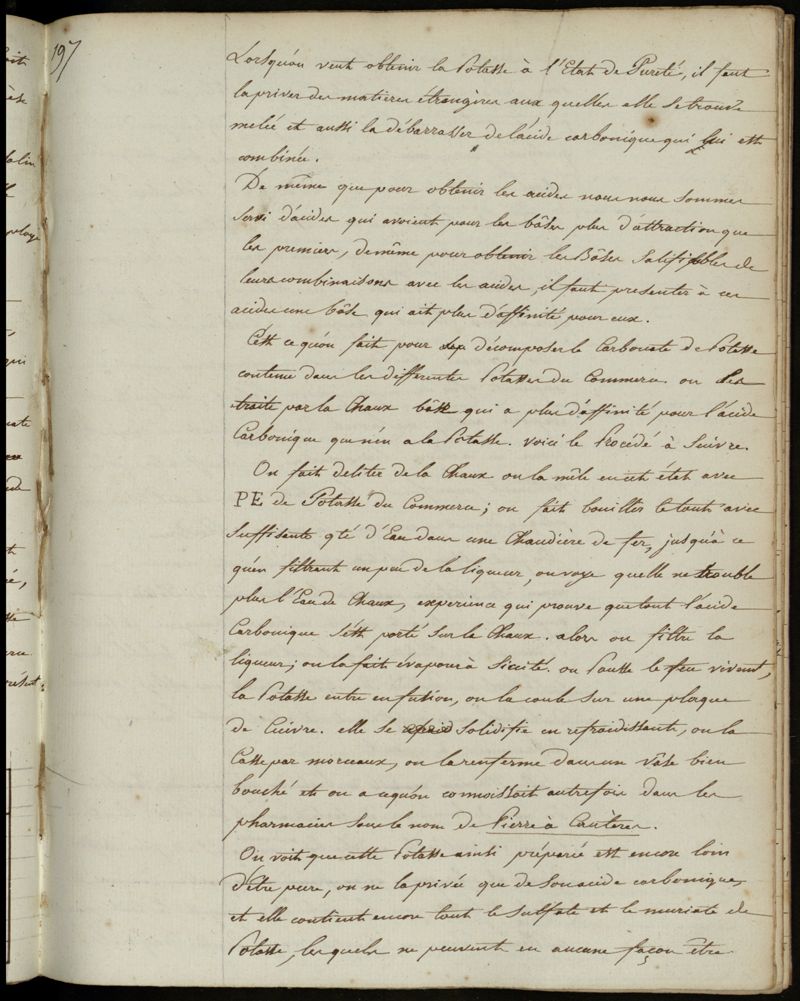 197
Lorsqu'on veut obtenir la Potasse à l'Etat de Pureté, il faut
la priver des matieres étrangères aux quelles elle se trouve
melée et aussi la débarrasser de l'acide carbonique qui lui est
combinée.
De même que pour obtenir les acides nous nous sommes
servi d'acides qui avoient pour les bâses plus d'attraction que
les premiers, de même pour obtenir les Bâses Salifiables de
leurs combinaisons avec les acides, il faut presenter à ces
acides une bâse qui ait plus d'affinité pour eux.
C'est ce qu'on fait pour décomposer le Carbonate de Potasse
contenu dans les differentes Potasses du Commerce. on les
traite par la Chaux bâse qui a plus d'affinité pour l'acide
Carbonique que n'en a la Potasse. voici le Procédé à Suivre.
On fait deliter de la Chaux on la mêle en cet état avec
PE de Potasse du Commerce; on fait bouillir le tout avec
Suffisante qté d'Eau dans une Chaudière de fer, jusqu'à ce
qu'en filtrant un peu de la liqueur, on voye quelle ne trouble
plus l'Eau de Chaux, experience qui prouve que tout l'acide
Carbonique s'est porté Sur la Chaux. alors on filtre la
liqueur; on la fait évaporer à Siccité. on Pousse le feu vivement,
la Potasse entre en fusion, on la coule Sur une plaque
de Cuivre. elle Se Solidifie en refroidissant, on la
Casse par morceaux, on la renferme dans un vâse bien
bouché et on a ce qu'on connoissoit autrefois dans les
pharmacies Sous le nom de Pierre à Cautères.
On voit que cette Potasse ainsi préparée est encore loin
d'être pure, on ne la privée que de Son acide carbonique,
et elle contient encore tout le Sulfate et le muriate de
Potasse, les quels ne peuvent en aucune façon être